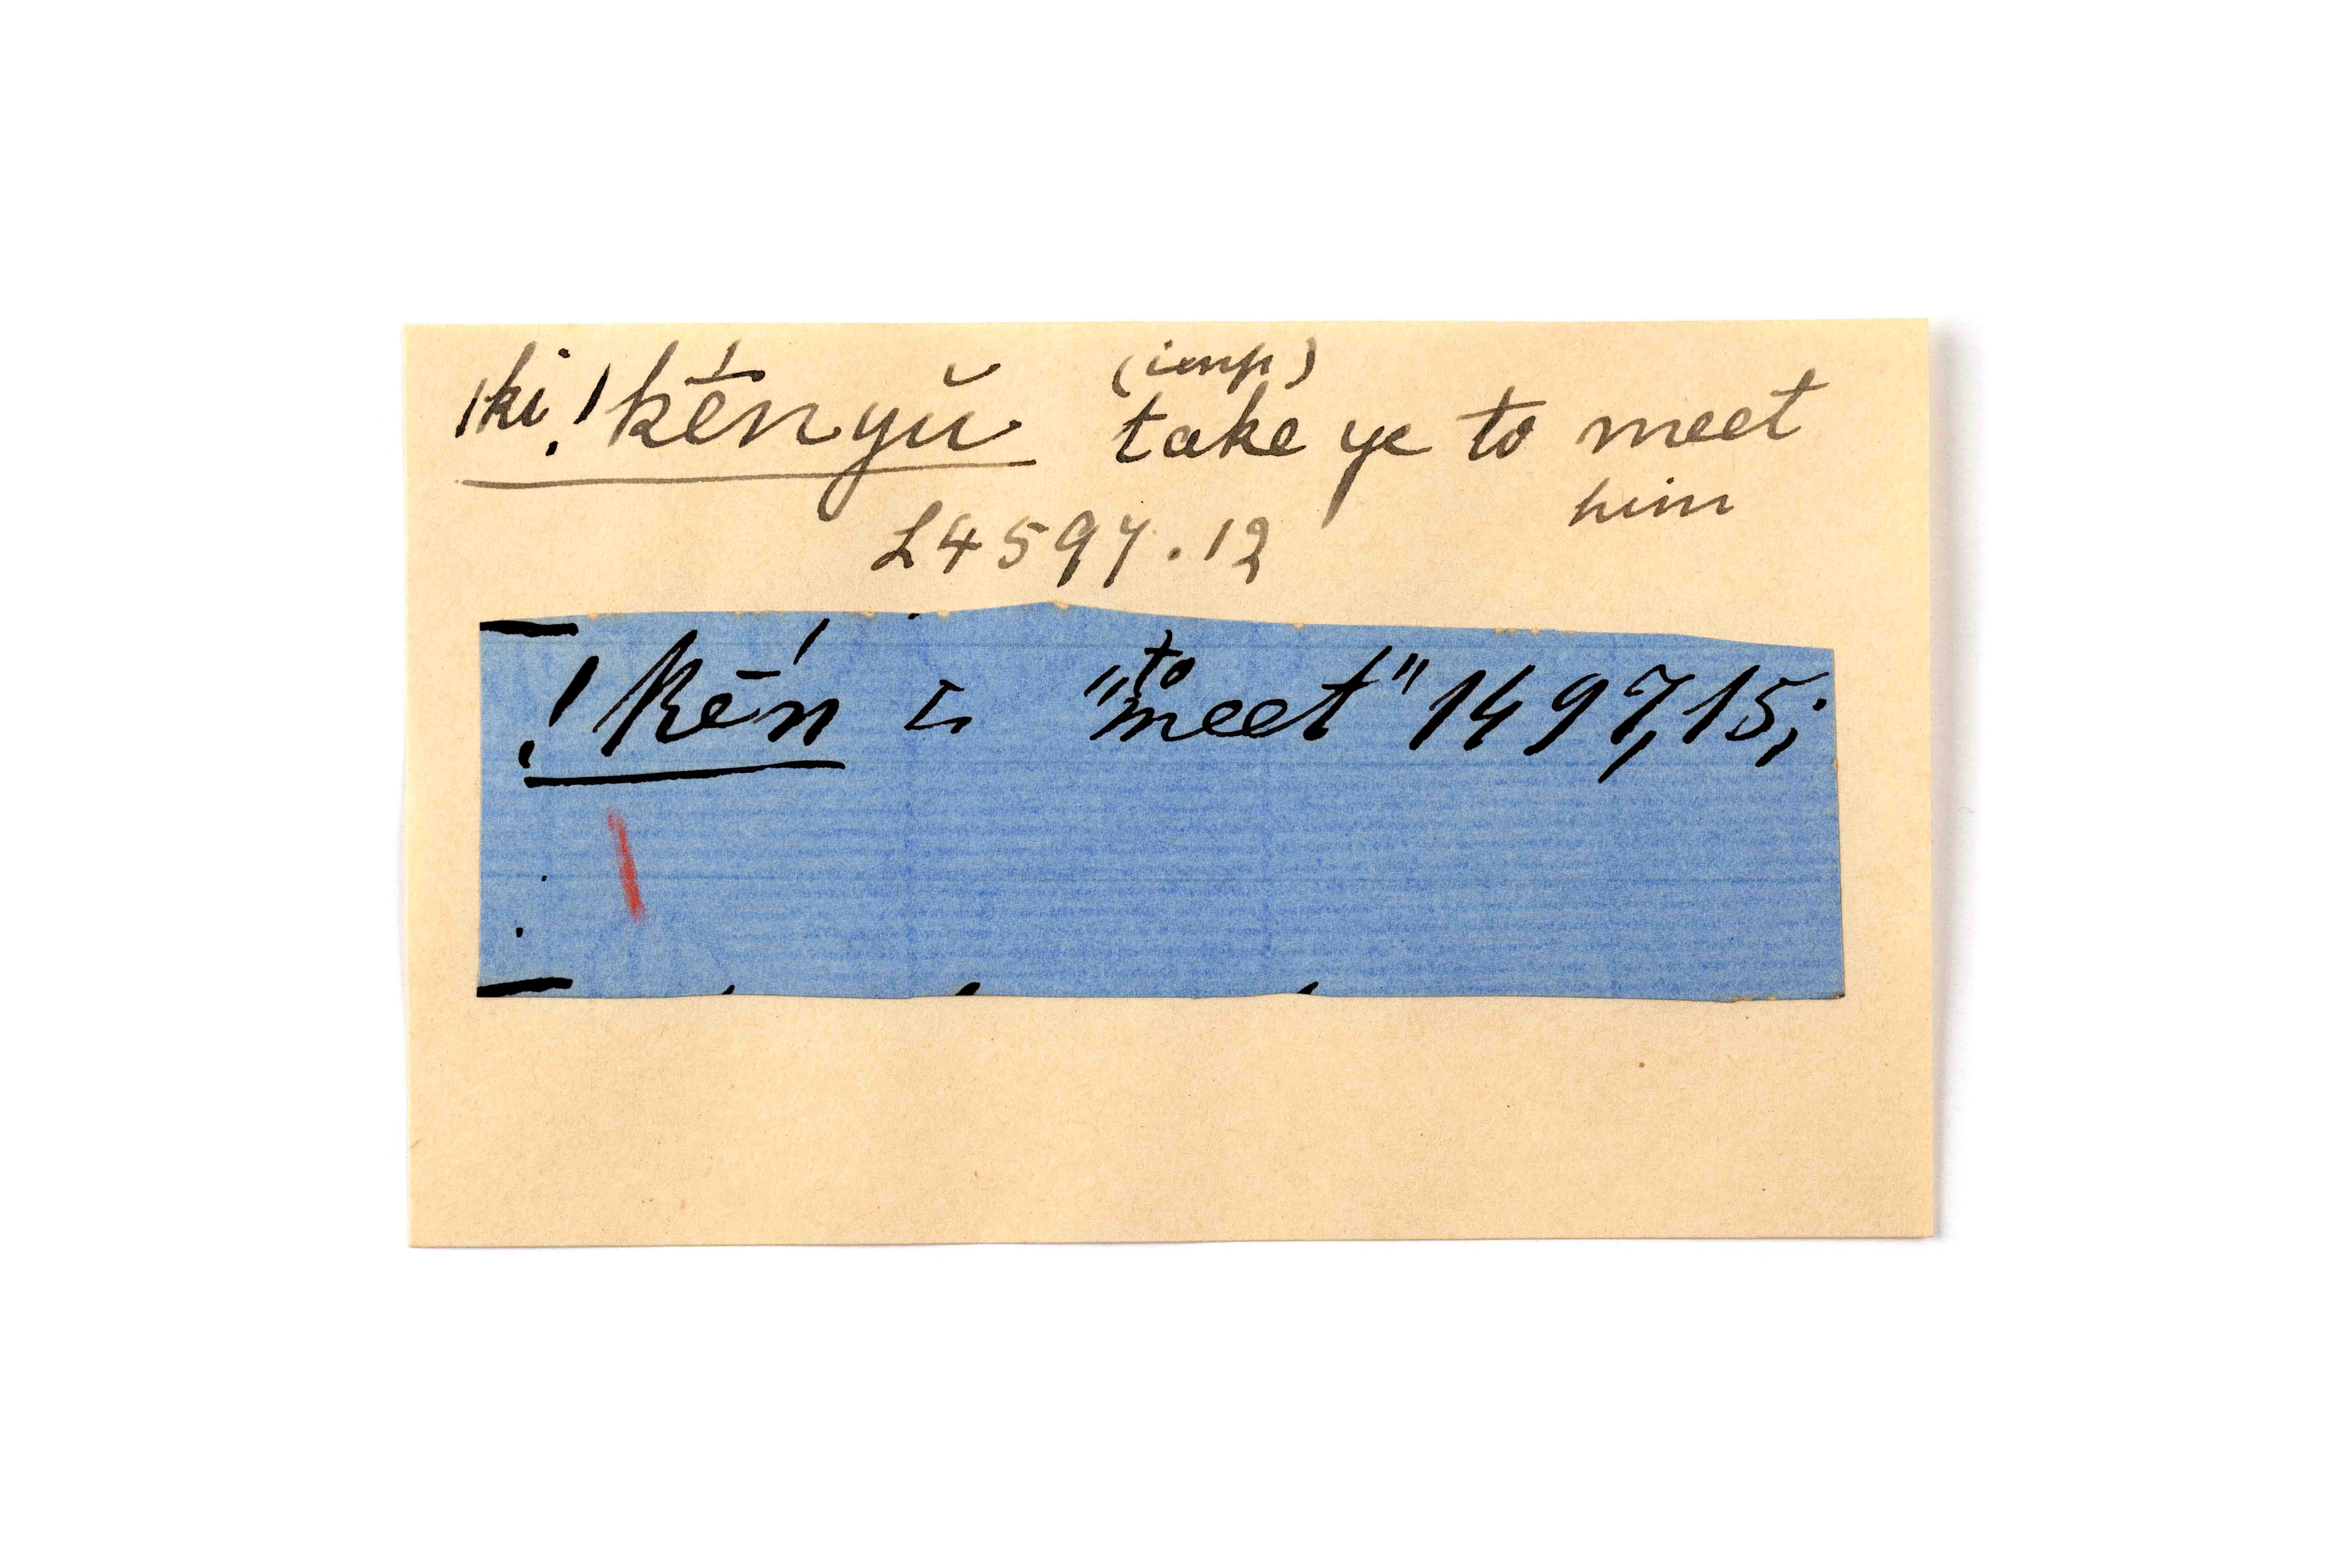 (imp)
|ki !kḗnyŭ take ye to meet
him
L4597.12
to
!kḗn is "meet" 1497,15;